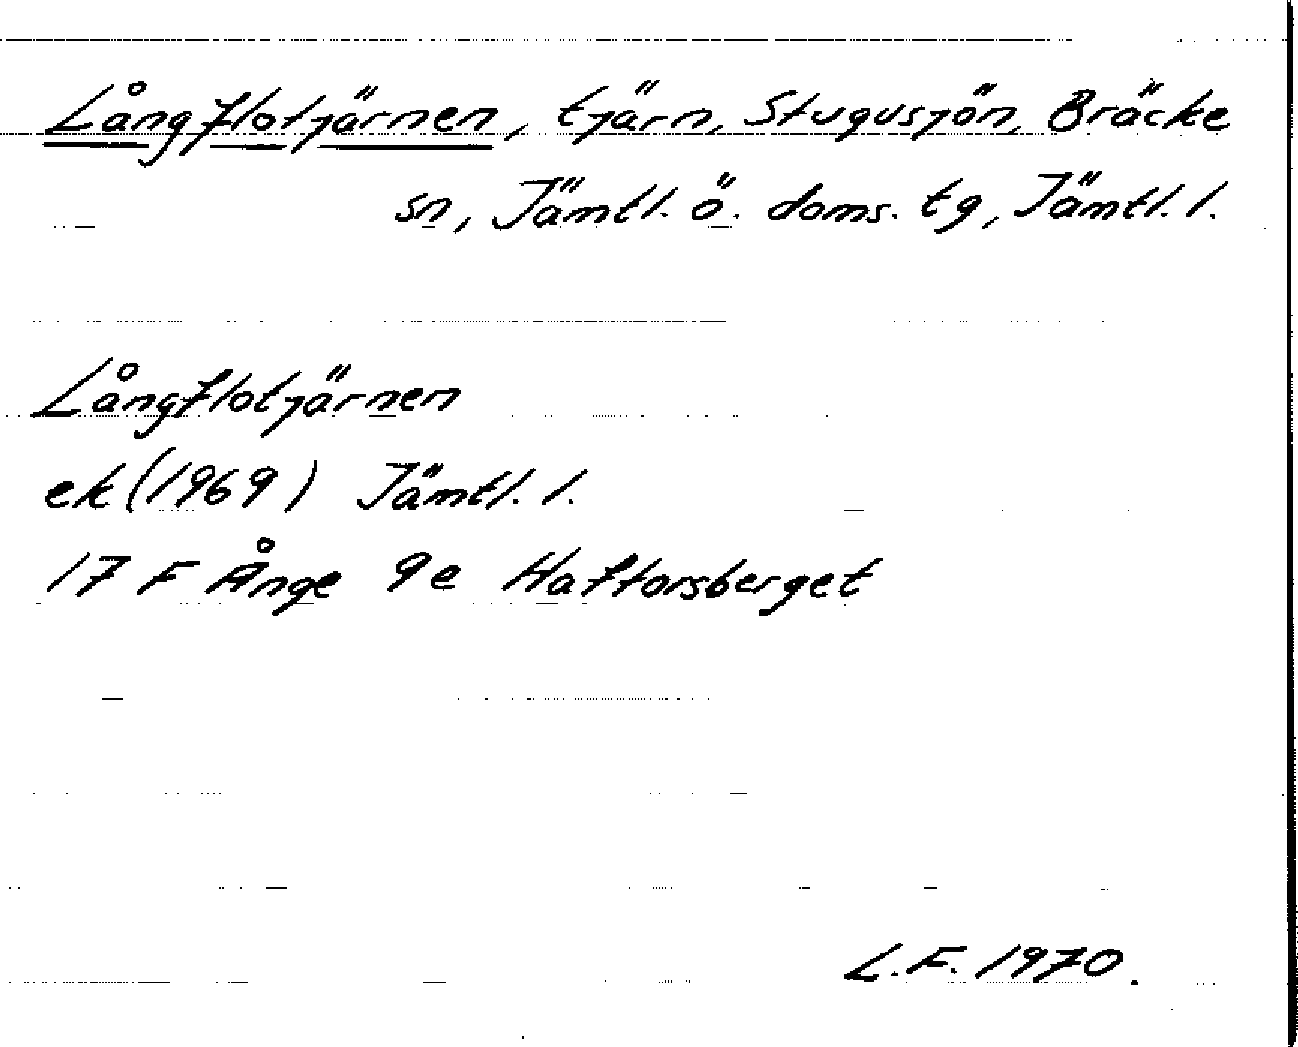 Långflotjärnen, tjärn, Stugusjön, Bräcke
sn, Jämtl. ö. doms. tg, Jämtl. l.
Långflotjärnen
ek (1969) Jämtl. l.
17 F Ånge 9e Haftorsberget
L.F. 1970.